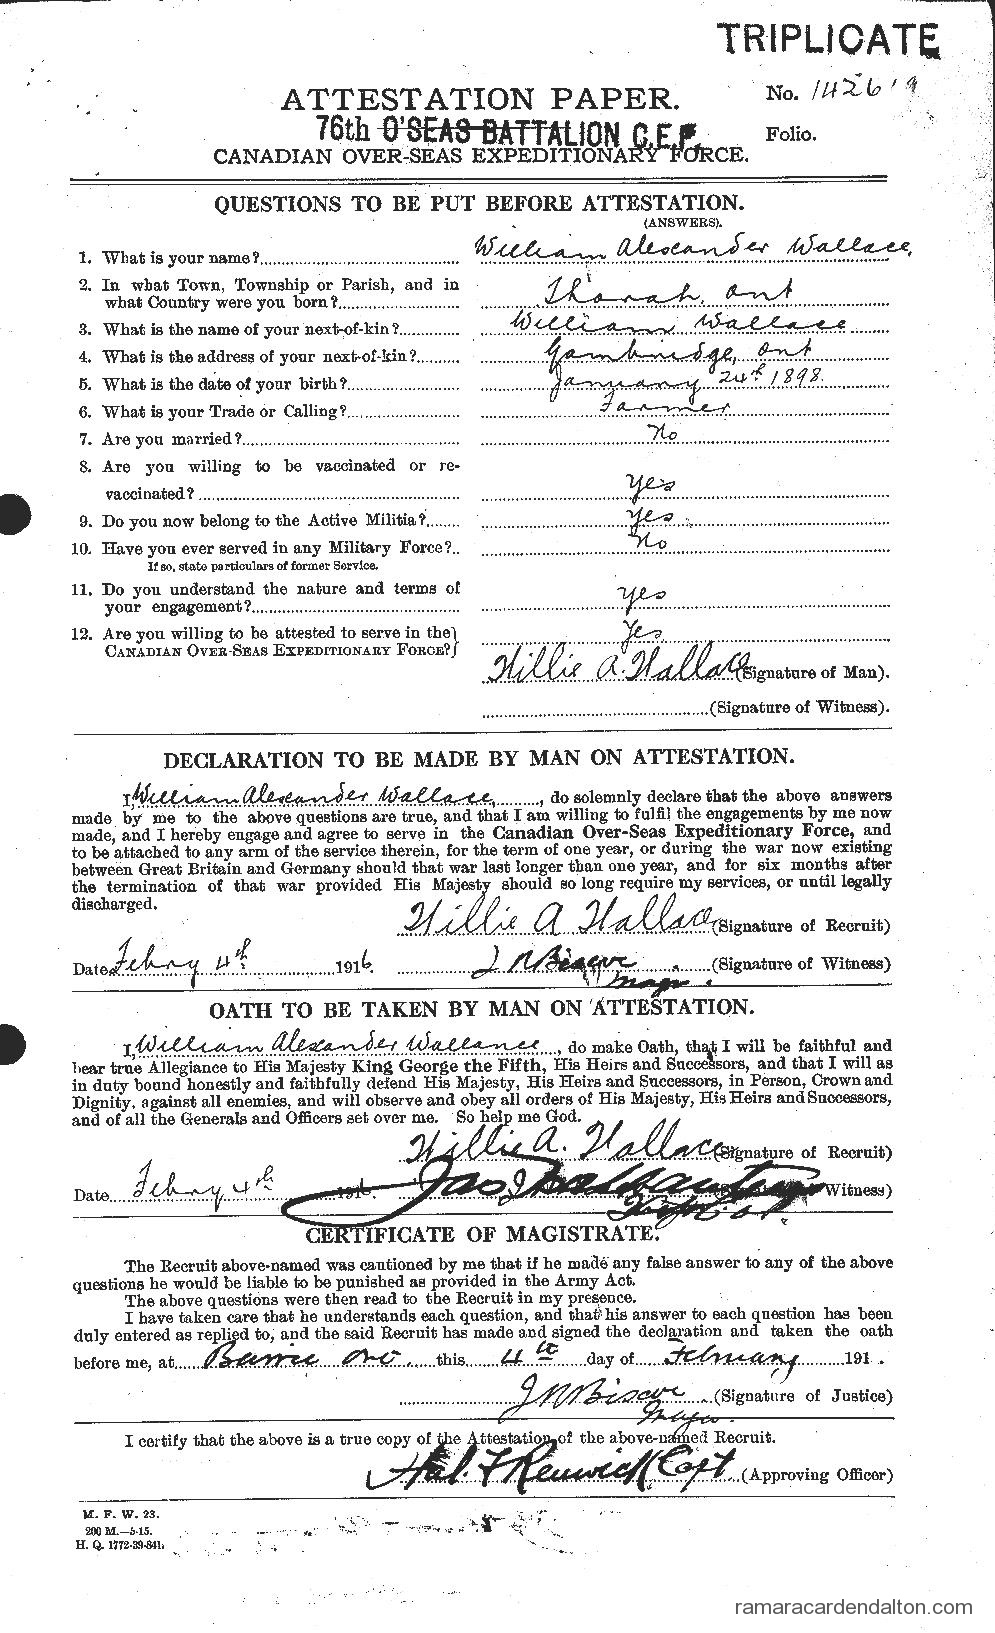 TRIPLICATE
No. 142619
ATTESTATION PAPER.
76th O'SEAS BATTALION C.E.F.
Folio.
CANADIAN OVER-SEAS EXPEDITIONARY FORCE.
QUESTIONS TO BE PUT BEFORE ATTESTATION.
(ANSWERS).
1. What is your name? William Alexander Wallace,
2. In what Town, Township or Parish, and in
what Country were you born? Thorah, Ont
3. What is the name of your next-of-kin? William Wallace
4. What is the address of your next-of-kin? Gambridge, Ont
5. What is the date of your birth? January 24th 1898.
6. What is your Trade or Calling? Farmer
7. Are you married? No
8. Are you willing to be vaccinated or re-
vaccinated? Yes
9. Do you now belong to the Active Militia? Yes
10. Have you ever served in any Military Force?.. No
If so, state particulars of former Service.
11. Do you understand the nature and terms of
your engagement? Yes
12. Are you willing to be attested to serve in the} Yes
CANADIAN OVER-SEAS EXPEDITIONARY FORCE?}
Willie A. Wallace (Signature of Man).
(Signature of Witness).
DECLARATION TO BE MADE BY MAN ON ATTESTATION.
I, William Alexander Wallace, do solemnly declare that the above answers
made by me to the above questions are true, and that I am willing to fulfil the engagements by me now
made, and I hereby engage and agree to serve in the Canadian Over-Seas Expeditionary Force, and
to be attached to any arm of the service therein, for the term of one year, or during the war now existing
between Great Britain and Germany should that war last longer than one year, and for six months after
the termination of that war provided His Majesty should so long require my services, or until legally
discharged.
Willie A Wallace (Signature of Recruit)
Date Febry 4th 1916 J N Biscoe (Signature of Witness)
Major
OATH TO BE TAKEN BY MAN ON ATTESTATION.
I, William Alexander Wallance, do make Oath, that I will be faithful and
bear true Allegiance to His Majesty King George the Fifth, His Heirs and Successors, and that I will as
in duty bound honestly and faithfully defend His Majesty, His Heirs and Successors, in Person, Crown and
Dignity, against all enemies, and will observe and obey all orders of His Majesty, His Heirs and Successors,
and of all the Generals and Officers set over me. So help me God.
Willie A. Wallace (Signature of Recruit)
Date Febry 4th 1916 Jas (Signature of Witness)
CERTIFICATE OF MAGISTRATE.
The Recruit above-named was cautioned by me that if he made any false answer to any of the above
questions he would be liable to be punished as provided in the Army Act.
The above questions were then read to the Recruit in my presence.
I have taken care that he understands each question, and that his answer to each question has been
duly entered as replied to, and the said Recruit has made and signed the declaration and taken the oath
before me, at Barrie Ont. this 4th day of February 191 .
J N Biscoe (Signature of Justice)
Major
I certify that the above is a true copy of the Attestation of the above-named Recruit.
Hal. F Renwick Capt (Approving Officer)
M. F. W. 23.
200 M.—5-15.
H. Q. 1772-39-841.
ramaracardendalton.com